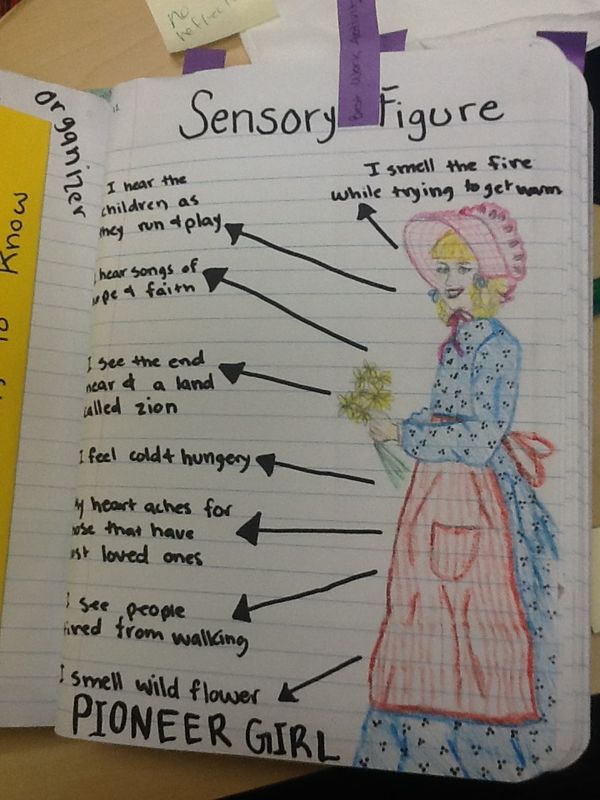 no
Best Work Activity
organizer
Know
To
Sensory Figure
I smell the fire
while trying to get warm
I hear the
children as
they run & play
hear songs of
hope & faith
I see the end
near & a land
called zion
I feel cold & hungry
My heart aches for
those that have
lost loved ones
I see people
tired from walking
I smell wild flower
PIONEER GIRL